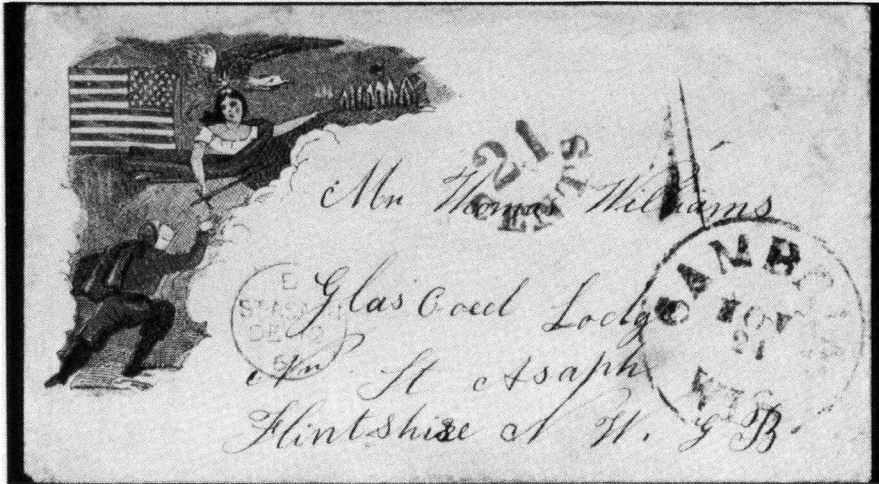 21
CENTS
Mr Thomas Williams
Glas Coed Lodge
Nr St Asaph
Flintshire N W. G B.
ST ASAPH
CAMBRIA
NOV
21
WIS